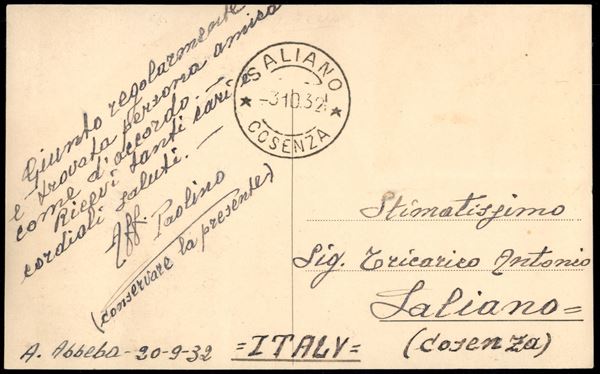 Giunto regolarmente
e trovata persona amica
come d'accordo. —
Ricevi tanti cari e
cordiali saluti. —
Aff. Paolino
(conservare la presente)
A. Abbeba - 20-9-32
=ITALY=
SALIANO
-3.10.32
COSENZA
Stimatissimo
Sig. Tricarico Antonio
Saliano=
(Cosenza)